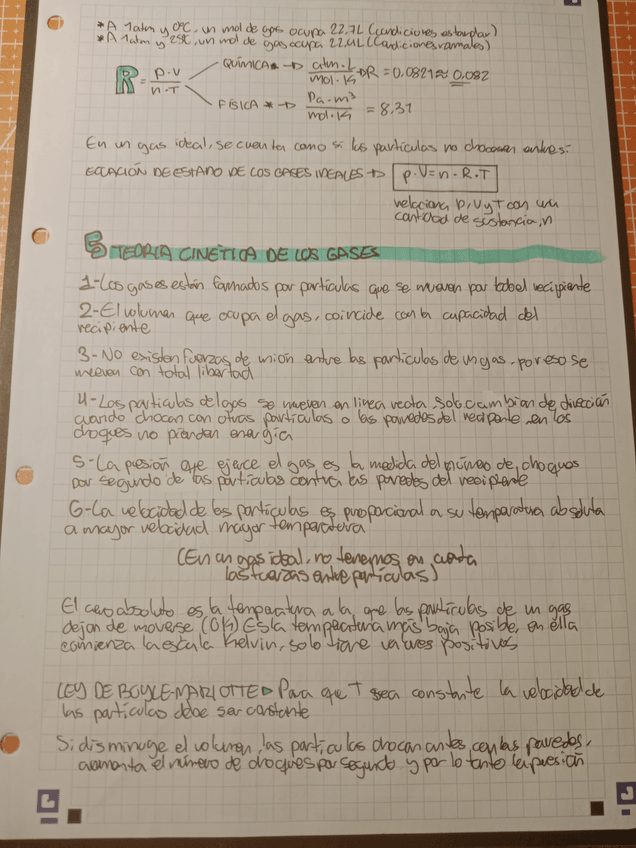 *A 1atm y 0ºC, un mol de gas ocupa 22.7L (condiciones estandar)
*A 1atm y 25ºC, un mol de gas ocupa 22.4L (condiciones normales)
R = p·V / n·T
QUÍMICA* → atm·L / mol·K → R = 0,0821 ≈ 0,082
FÍSICA* → Pa·m³ / mol·K = 8,31
En un gas ideal, se cuenta como si las partículas no chocasen entre si.
ECUACIÓN DE ESTADO DE LOS GASES IDEALES → p·V = n·R·T
relaciona P, V y T con una
cantidad de sustancia, n
5 TEORÍA CINÉTICA DE LOS GASES
1-Los gases están formados por partículas que se mueven por todo el recipiente
2-El volumen que ocupa el gas, coincide con la capacidad del
recipiente
3-No existen fuerzas de unión entre las partículas de un gas, por eso se
mueven con total libertad
4-Las partículas del gas se mueven en línea recta, solo cambian de dirección
cuando chocan con otras partículas o las paredes del recipente, en los
choques no pierden energía
5-La presión que ejerce el gas es la medida del número de choques
por segundo de las partículas contra las paredes del recipiente
6-La velocidad de las partículas es proporcional a su temperatura absoluta
a mayor velocidad mayor temperatura
(En un gas ideal, no tenemos en cuenta
las fuerzas entre partículas)
El cero absoluto es la temperatura a la que las partículas de un gas
dejan de moverse (0K) Es la temperatura más baja posible, en ella
comienza la escala Kelvin, solo tiene valores positivos
LEY DE BOYLE-MARIOTTE ▸ Para que T sea constante la velocidad de
las partículas debe ser constante
Si disminuye el volumen, las partículas chocan antes, con las paredes,
aumenta el número de choques por segundo y por lo tanto la presión